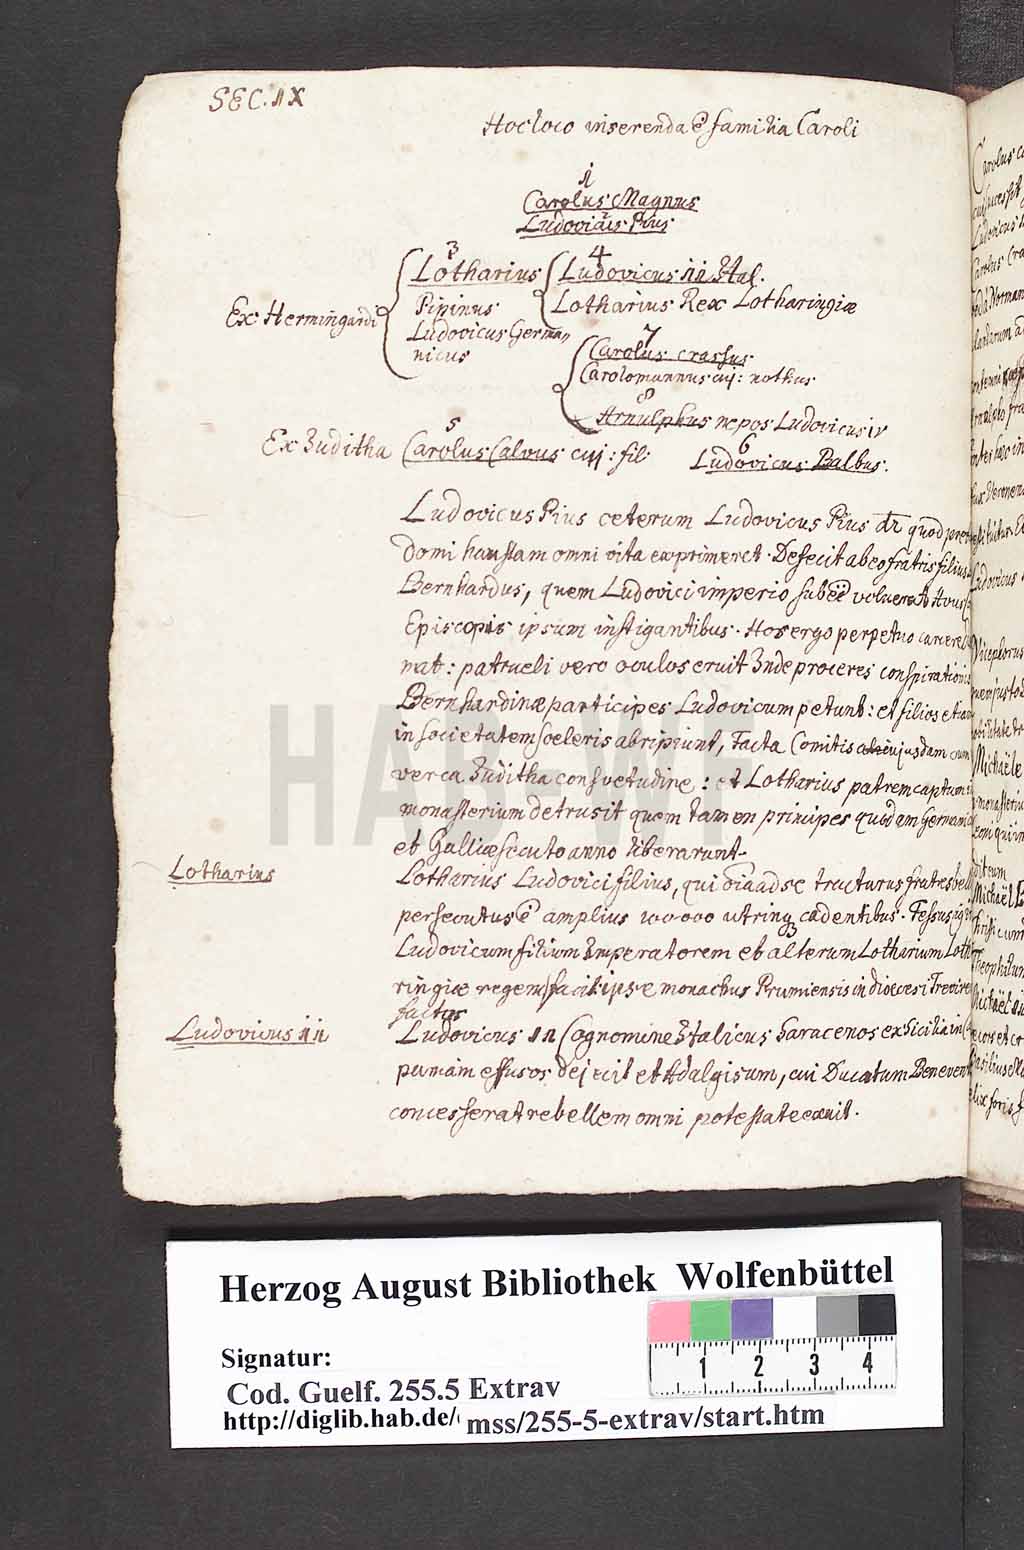 SEC. IX
Hoc loco inserenda ē familia Caroli
1
Carolus Magnus
2
Ludovicus Pius
3 4
Lotharius Ludovicus II Ital.
Ex Hermingardi Pipinus Lotharius Rex Lotharingiæ
Ludovicus Germa
nicus
7
Carolus crassus
Carolomannus cuj: nothus
8
Arnulphus nepos Ludovicus IV
5 6
Ex Juditha Carolus Calvus cuj: fil: Ludovicus Balbus.
Ludovicus Pius ceterum Ludovicus Pius dr quod
domi haustam omni vita exprimeret. Defecit ab eo fratris filius
Bernhardus, quem Ludovici imperio subeē voluerat
Episcopis ipsum instigantibus. Hos ergo perpetuo carcere
nat: patrueli vero oculos eruit Inde proceres conspirationis
Bernhardinæ participes Ludovicum petunt: et filios etiam
in societatem sceleris abripiunt, Facta Comitis cujusdam cum
verca Juditha consvetudine: et Lotharius patrem captum
monasterium detrusit quem tamen principes quidem Germaniæ
et Galliæ secuto anno liberarunt.
Lotharius
Lotharius Ludovici filius, qui oia ad se tracturus fratres bell
persecutus ē amplius 100000 utrinq cadentibus. Fessus
Ludovicum filium Imperatorem et alterum Lotharium Loth
ringiæ regem facit ipse monachus Prumiensis in dioecesi Trevire
factus
Ludovicus II
Ludovicus II Cognomine Italicus Saracenos ex Sicilia in
pamam effusos dejecit et Adalgisum, cui Ducatum Benevent
concesserat rebellem omni potestate exuit.
HAB-WF
Herzog August Bibliothek Wolfenbüttel
Signatur:
Cod. Guelf. 255.5 Extrav
http://diglib.hab.de/ mss/255-5-extrav/start.htm
1 2 3 4